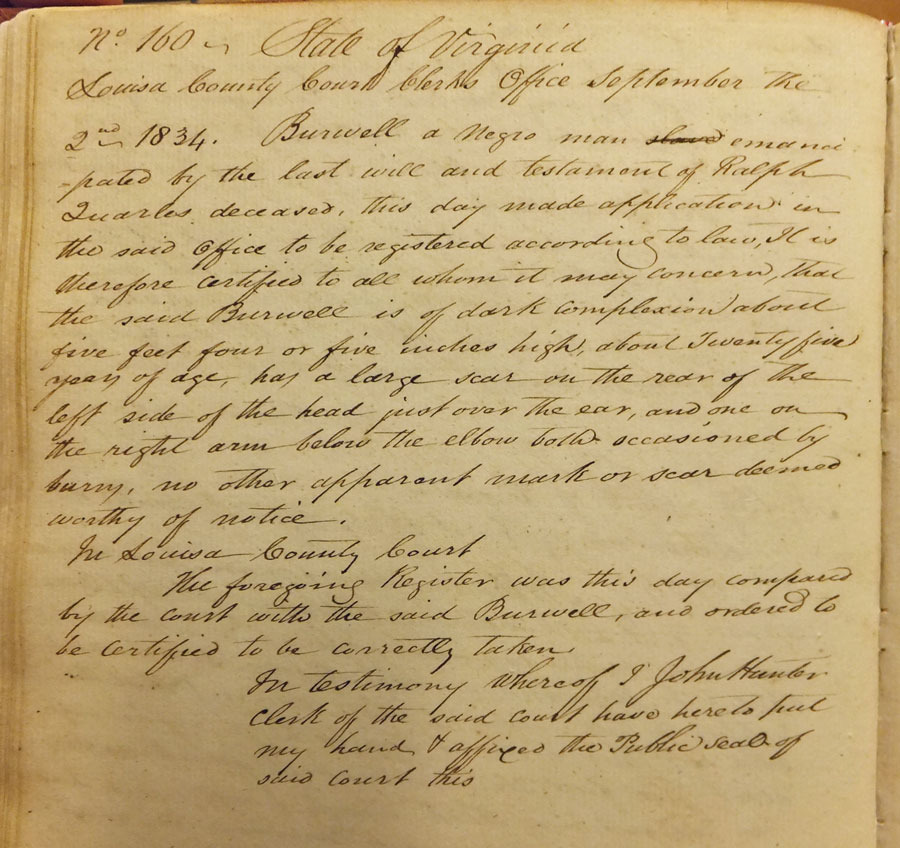 No 160 State of Virginia
Louisa County Court Clerks Office September the
2nd 1834. Burwell a Negro man slave emanci
-pated by the last will and testament of Ralph
Quarles deceased, this day made application in
the said Office to be registered according to law, It is
therefore certified to all whom it may concern, that
the said Burwell is of dark complexion about
five feet four or five inches high, about Twenty five
years of age, has a large scar on the rear of the
left side of the head just over the ear, and one on
the right arm below the elbow both occasioned by
burns, no other apparent mark or scar deemed
worthy of notice.
In Louisa County Court
The foregoing Register was this day compared
by the court with the said Burwell, and ordered to
be certified to be correctly taken
In testimony whereof I John Hunter
Clerk of the said court have hereto put
my hand & affixed the Public seal of
said court this